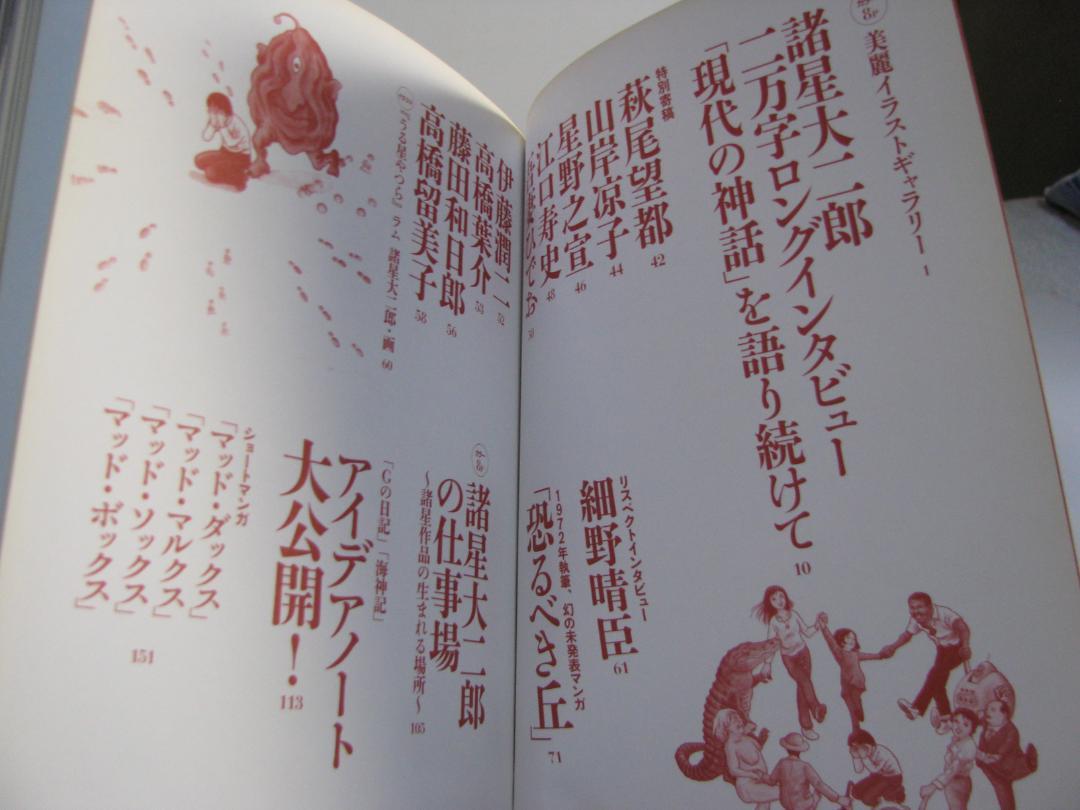 カラー8P
美麗イラストギャラリー 1
諸星大二郎
二万字ロングインタビュー
「現代の神話」を語り続けて 10
特別寄稿
萩尾望都 42
山岸凉子 44
星野之宣 46
江口寿史 48
50
リスペクトインタビュー
細野晴臣 61
1972年執筆、幻の未発表マンガ
「恐るべき丘」 71
伊藤潤二 52
高橋葉介 53
藤田和日郎 56
高橋留美子 58
『うる星やつら』ラム 諸星大二郎・画 60
カラー8P
諸星大二郎
の仕事場
〜諸星作品の生まれる場所〜 105
「Gの日記」「海神記」
アイデアノート
大公開! 113
ショートマンガ
「マッド・ダックス」
「マッド・マルクス」
「マッド・ソックス」
「マッド・ボックス」
151